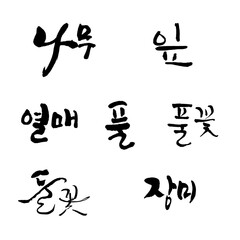 나무 잎
열매 풀 풀꽃
풀꽃 장미